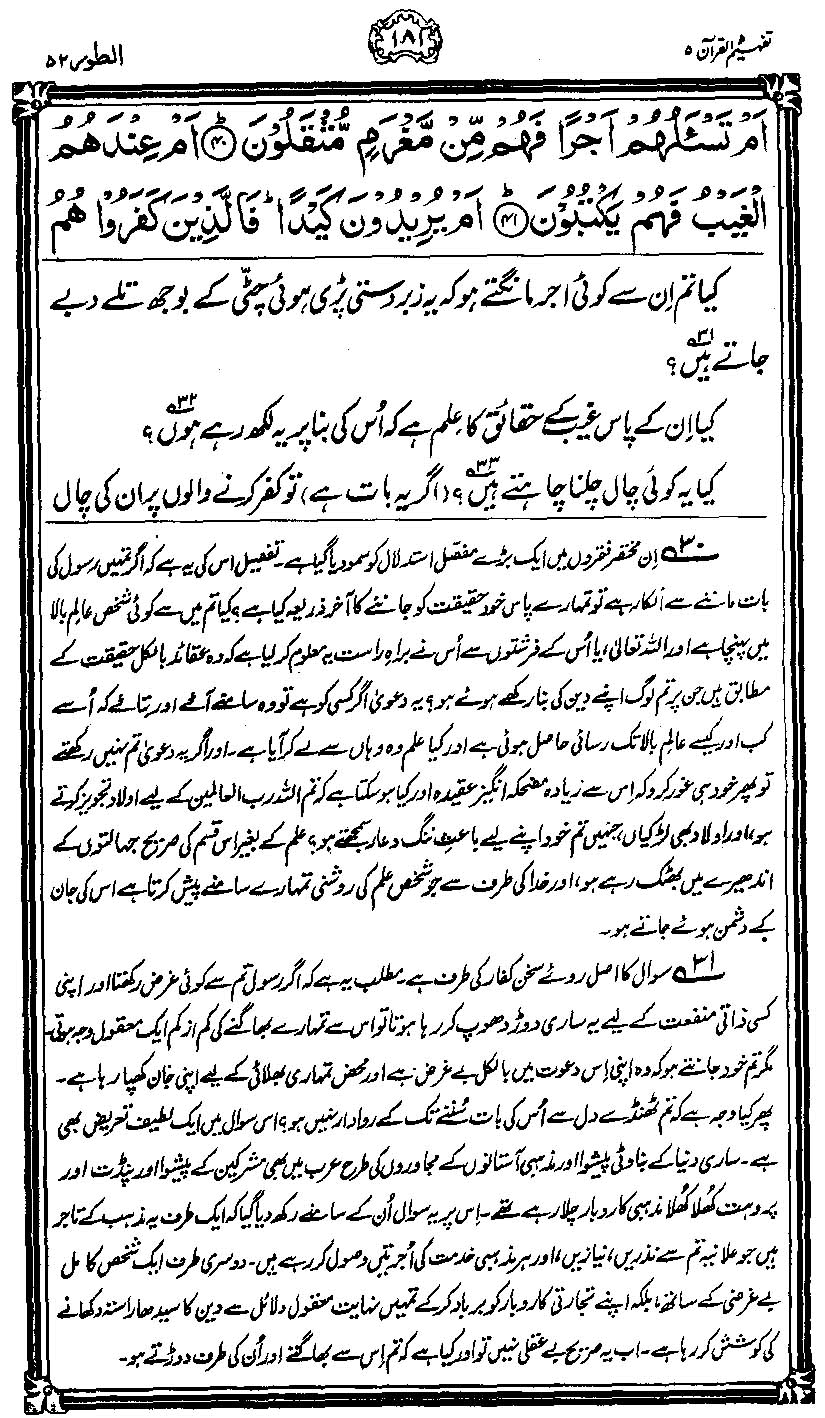 تفہیم القرآن ۵
۱۸۱
الطور ۵۲
اَمْ تَسْـَٔلُهُمْ اَجْرًا فَهُمْ مِّنْ مَّغْرَمٍ مُّثْقَلُوْنَ ﴿۴۰﴾ اَمْ عِنْدَهُمُ
الْغَيْبُ فَهُمْ يَكْتُبُوْنَ ﴿۴۱﴾ اَمْ يُرِيْدُوْنَ كَيْدًا ؕ فَالَّذِيْنَ كَفَرُوْا هُمُ
کیا تم اِن سے کوئی اجر مانگتے ہو کہ یہ زبردستی پڑی ہوئی چٹّی کے بوجھ تلے دبے
جاتے ہیں؟ ۳۱
کیا اِن کے پاس غیب کے حقائق کا علم ہے کہ اُس کی بنا پر یہ لکھ رہے ہوں؟ ۳۲
کیا یہ کوئی چال چلنا چاہتے ہیں؟ ۳۳ (اگر یہ بات ہے) تو کفر کرنے والوں پر ان کی چال
۳۰ اِن مختصر فقروں میں ایک بڑے مفصل استدلال کو سمو دیا گیا ہے۔ تفصیل اس کی یہ ہے کہ اگر تمہیں رسول کی
بات ماننے سے انکار ہے تو تمہارے پاس خود حقیقت کو جاننے کا آخر ذریعہ کیا ہے؟ کیا تم میں سے کوئی شخص عالمِ بالا
میں پہنچا ہے اور اللہ تعالیٰ، یا اُس کے فرشتوں سے اُس نے براہِ راست یہ معلوم کر لیا ہے کہ وہ عقائد بالکل حقیقت کے
مطابق ہیں جن پر تم لوگ اپنے دین کی بنا رکھے ہوئے ہو؟ یہ دعویٰ اگر کسی کو ہے تو وہ سامنے آئے اور بتائے کہ اُسے
کب اور کیسے عالمِ بالا تک رسائی حاصل ہوئی ہے اور کیا علم وہ وہاں سے لے کر آیا ہے۔ اور اگر یہ دعویٰ تم نہیں رکھتے
تو پھر خود ہی غور کرو کہ اِس سے زیادہ مضحکہ انگیز عقیدہ اور کیا ہو سکتا ہے کہ تم اللہ رب العالمین کے لیے اولاد تجویز کرتے
ہو، اور اولاد بھی لڑکیاں، جنہیں تم خود اپنے لیے باعثِ ننگ و عار سمجھتے ہو؟ علم کے بغیر اس قسم کی صریح جہالتوں کے
اندھیرے میں بھٹک رہے ہو، اور خدا کی طرف سے جو شخص علم کی روشنی تمہارے سامنے پیش کرتا ہے اس کی جان
کے دشمن ہوئے جاتے ہو۔
۳۱ سوال کا اصل روئے سخن کفار کی طرف ہے۔ مطلب یہ ہے کہ اگر رسول تم سے کوئی غرض رکھتا اور اپنی
کسی ذاتی منفعت کے لیے یہ ساری دوڑ دھوپ کر رہا ہوتا تو اس سے تمہارے بھاگنے کی کم از کم ایک معقول وجہ ہوتی۔
مگر تم خود جانتے ہو کہ وہ اپنی اِس دعوت میں بالکل بے غرض ہے اور محض تمہاری بھلائی کے لیے اپنی جان کھپا رہا ہے۔
پھر کیا وجہ ہے کہ تم ٹھنڈے دل سے اُس کی بات سُننے تک کے روادار نہیں ہو؟ اس سوال میں ایک لطیف تعریض بھی
ہے۔ ساری دنیا کے بناوٹی پیشوا اور مذہبی آستانوں کے مجاوروں کی طرح عرب میں بھی مشرکین کے پیشوا اور پنڈت اور
پروہت کھُلا کھُلا مذہبی کاروبار چلا رہے تھے۔ اِس پر یہ سوال اُن کے سامنے رکھ دیا گیا کہ ایک طرف یہ مذہب کے تاجر
ہیں جو علانیہ تم سے نذریں، نیازیں، اور ہر مذہبی خدمت کی اُجرتیں وصول کر رہے ہیں۔ دوسری طرف ایک شخص کامل
بے غرضی کے ساتھ، بلکہ اپنے تجارتی کاروبار کو برباد کر کے تمہیں نہایت معقول دلائل سے دین کا سیدھا راستہ دکھانے
کی کوشش کر رہا ہے۔ اب یہ صریح بے عقلی نہیں تو اور کیا ہے کہ تم اِس سے بھاگتے اور اُن کی طرف دوڑتے ہو۔